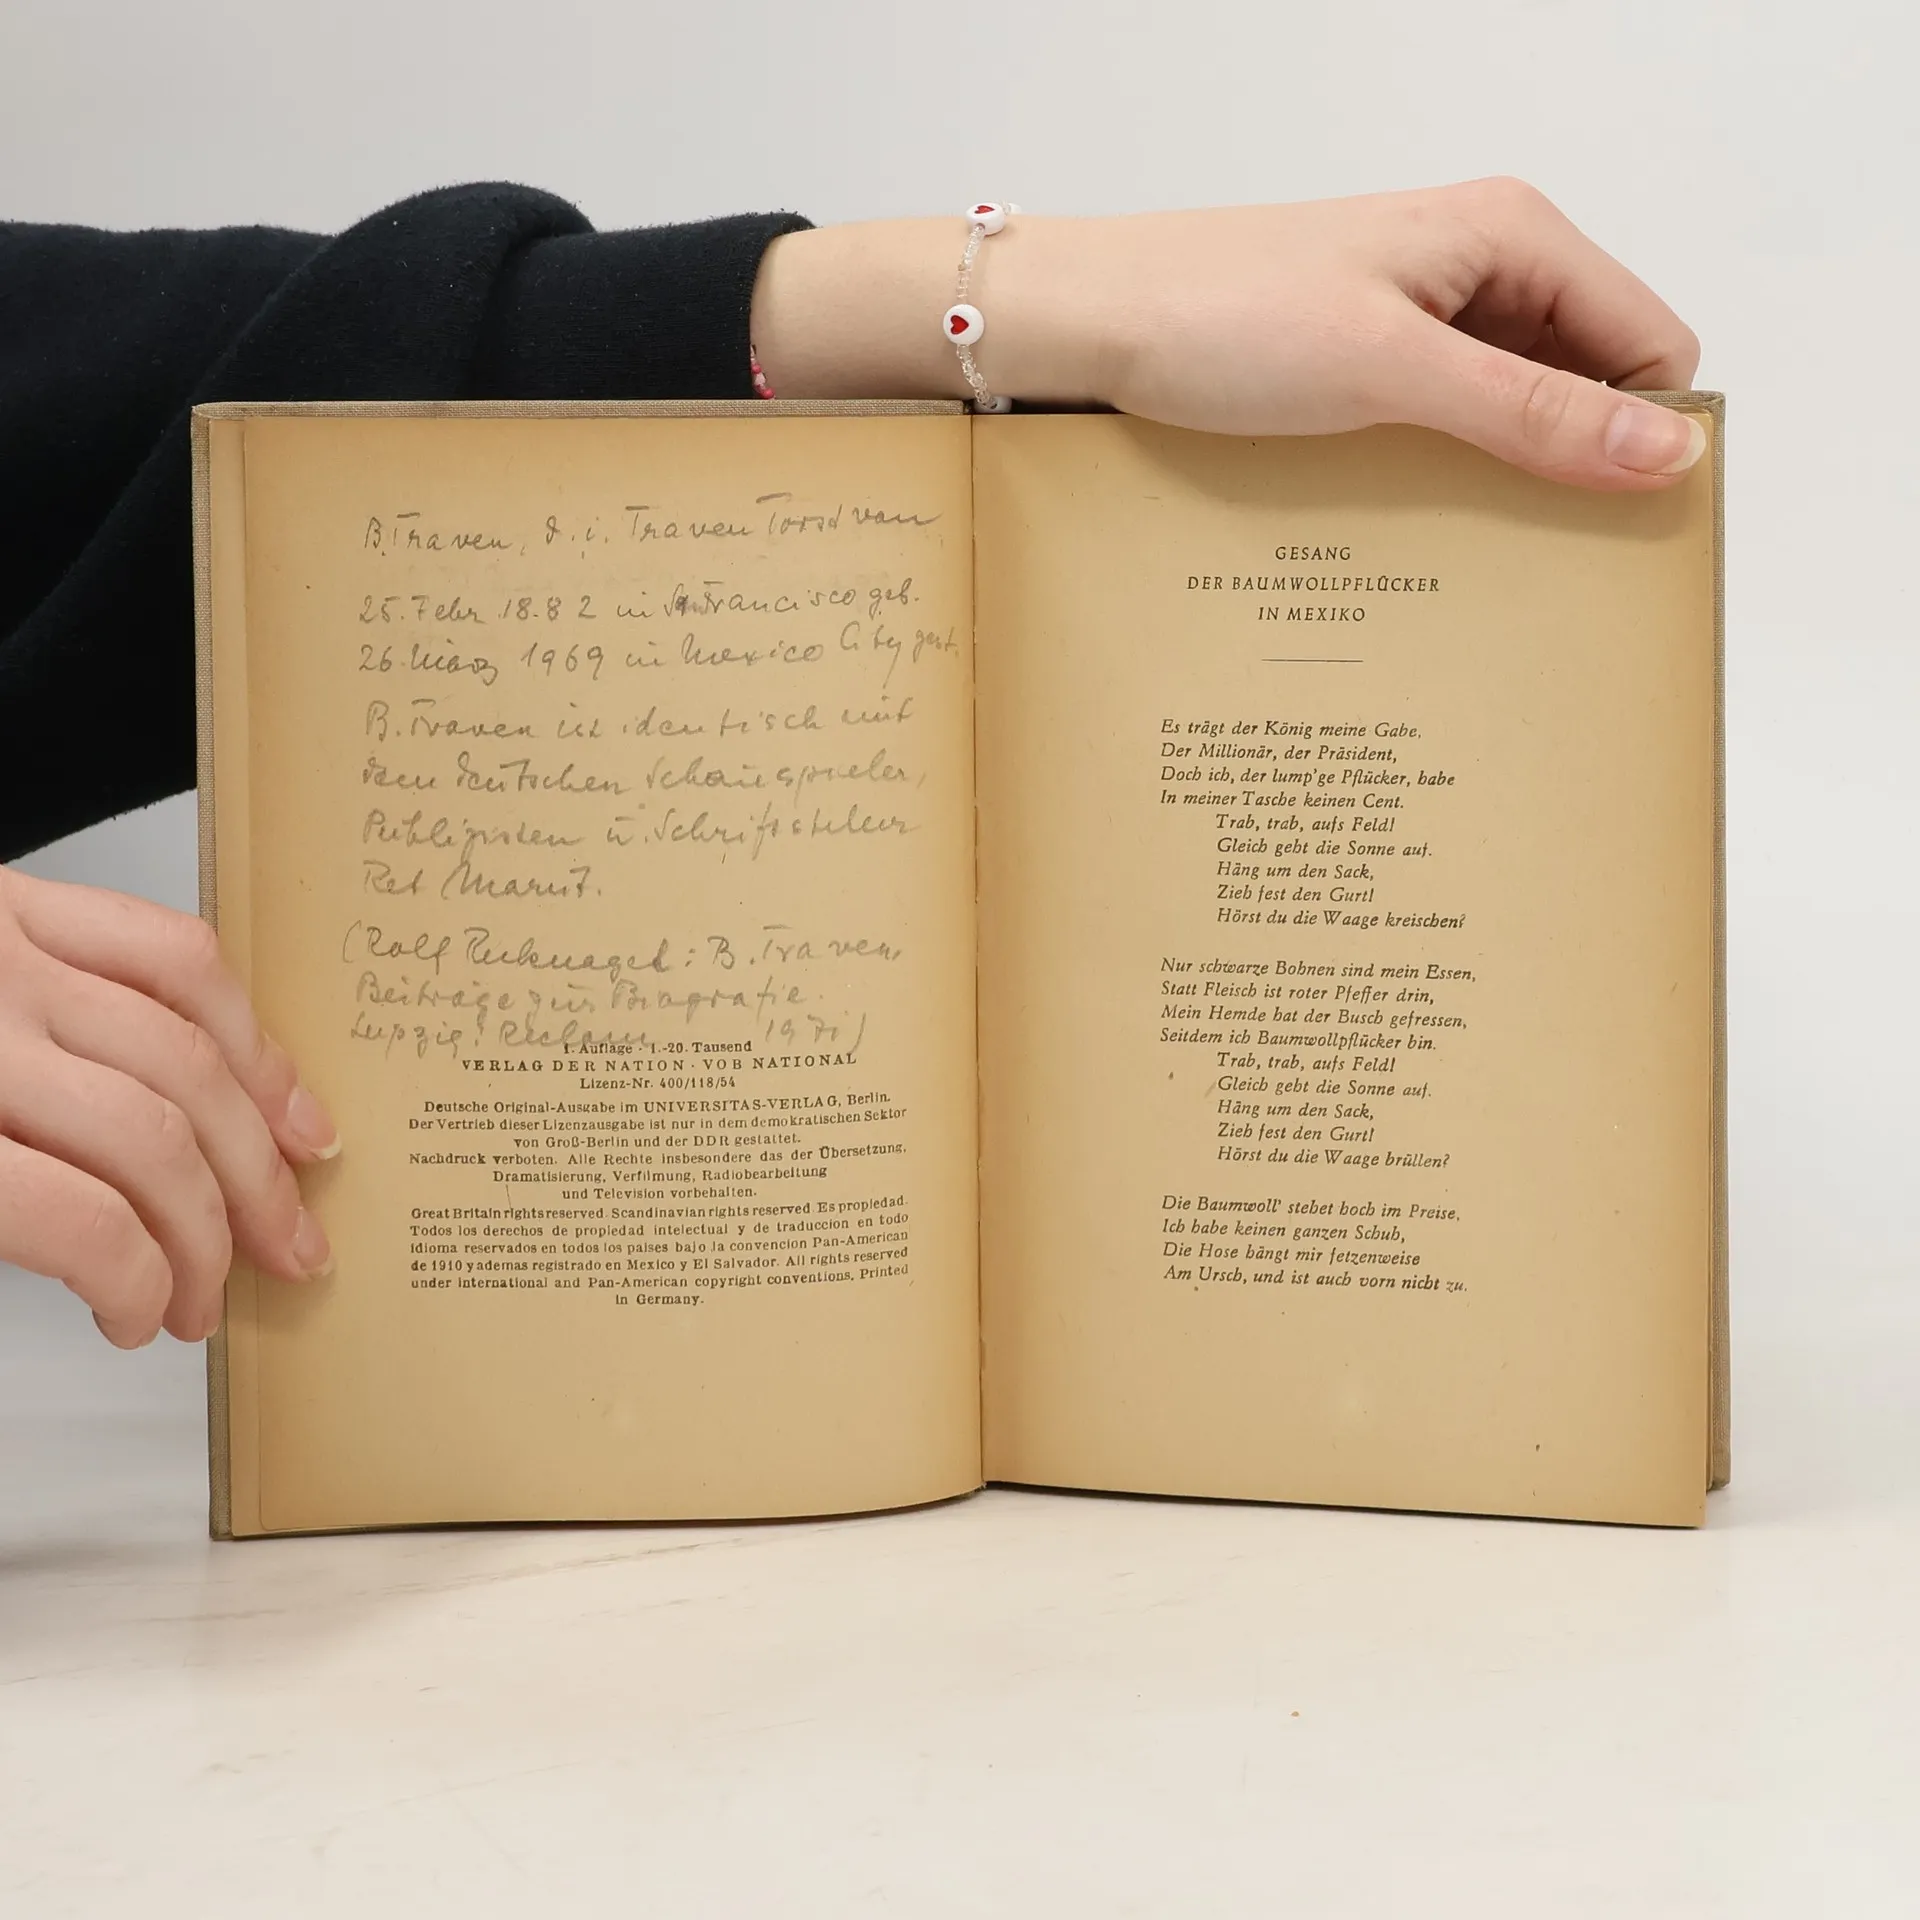 B. Traven, d. i. Traven Torsvan
25. Febr. 1882 in San Francisco geb.
26. März 1969 in Mexico City gest.
B. Traven ist identisch mit
dem deutschen Schauspieler,
Publizisten u. Schriftsteller
Ret Marut.
(Rolf Recknagel: B. Traven.
Beiträge zur Biografie.
Leipzig: Reclam 1971)
1. Auflage · 1.-20. Tausend
VERLAG DER NATION · VOB NATIONAL
Lizenz-Nr. 400/118/54
Deutsche Original-Ausgabe im UNIVERSITAS-VERLAG, Berlin.
Der Vertrieb dieser Lizenzausgabe ist nur in dem demokratischen Sektor
von Groß-Berlin und der DDR gestattet.
Nachdruck verboten. Alle Rechte insbesondere das der Übersetzung,
Dramatisierung, Verfilmung, Radiobearbeitung
und Television vorbehalten.
Great Britain rights reserved. Scandinavian rights reserved. Es propiedad.
Todos los derechos de propiedad intelectual y de traduccion en todo
idioma reservados en todos los paises bajo la convencion Pan-American
de 1910 y ademas registrado en Mexico y El Salvador. All rights reserved
under international and Pan-American copyright conventions. Printed
in Germany.
GESANG
DER BAUMWOLLPFLÜCKER
IN MEXIKO
Es trägt der König meine Gabe,
Der Millionär, der Präsident,
Doch ich, der lump'ge Pflücker, habe
In meiner Tasche keinen Cent.
Trab, trab, aufs Feld!
Gleich geht die Sonne auf.
Häng um den Sack,
Zieh fest den Gurt!
Hörst du die Waage kreischen?
Nur schwarze Bohnen sind mein Essen,
Statt Fleisch ist roter Pfeffer drin,
Mein Hemde hat der Busch gefressen,
Seitdem ich Baumwollpflücker bin.
Trab, trab, aufs Feld!
Gleich geht die Sonne auf.
Häng um den Sack,
Zieh fest den Gurt!
Hörst du die Waage brüllen?
Die Baumwoll' stehet hoch im Preise,
Ich habe keinen ganzen Schuh,
Die Hose hängt mir fetzenweise
Am Ursch, und ist auch vorn nicht zu.